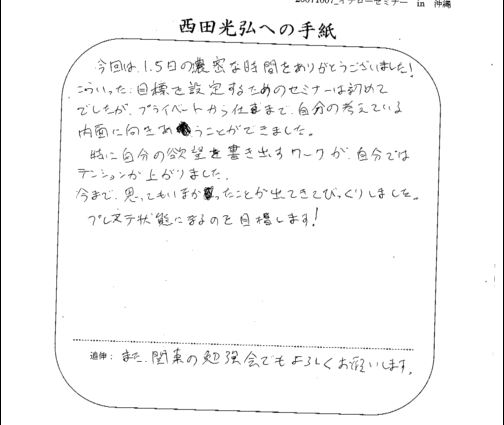 20071007_イナローセミナー in 沖縄
西田光弘への手紙
今回は、1.5日の濃密な時間をありがとうございました!
こういった、目標を設定するためのセミナーは初めて
でしたが、プライベートから仕事まで、自分の考えている
内面に向きあうことができました。
特に自分の欲望を書き出すワークが、自分では
テンションが上がりました。
今まで、思ってもいなかったことが出てきてびっくりしました。
プレステ状態になるのを目標します!
追伸: また、関東の勉強会でもよろしくお願いします。